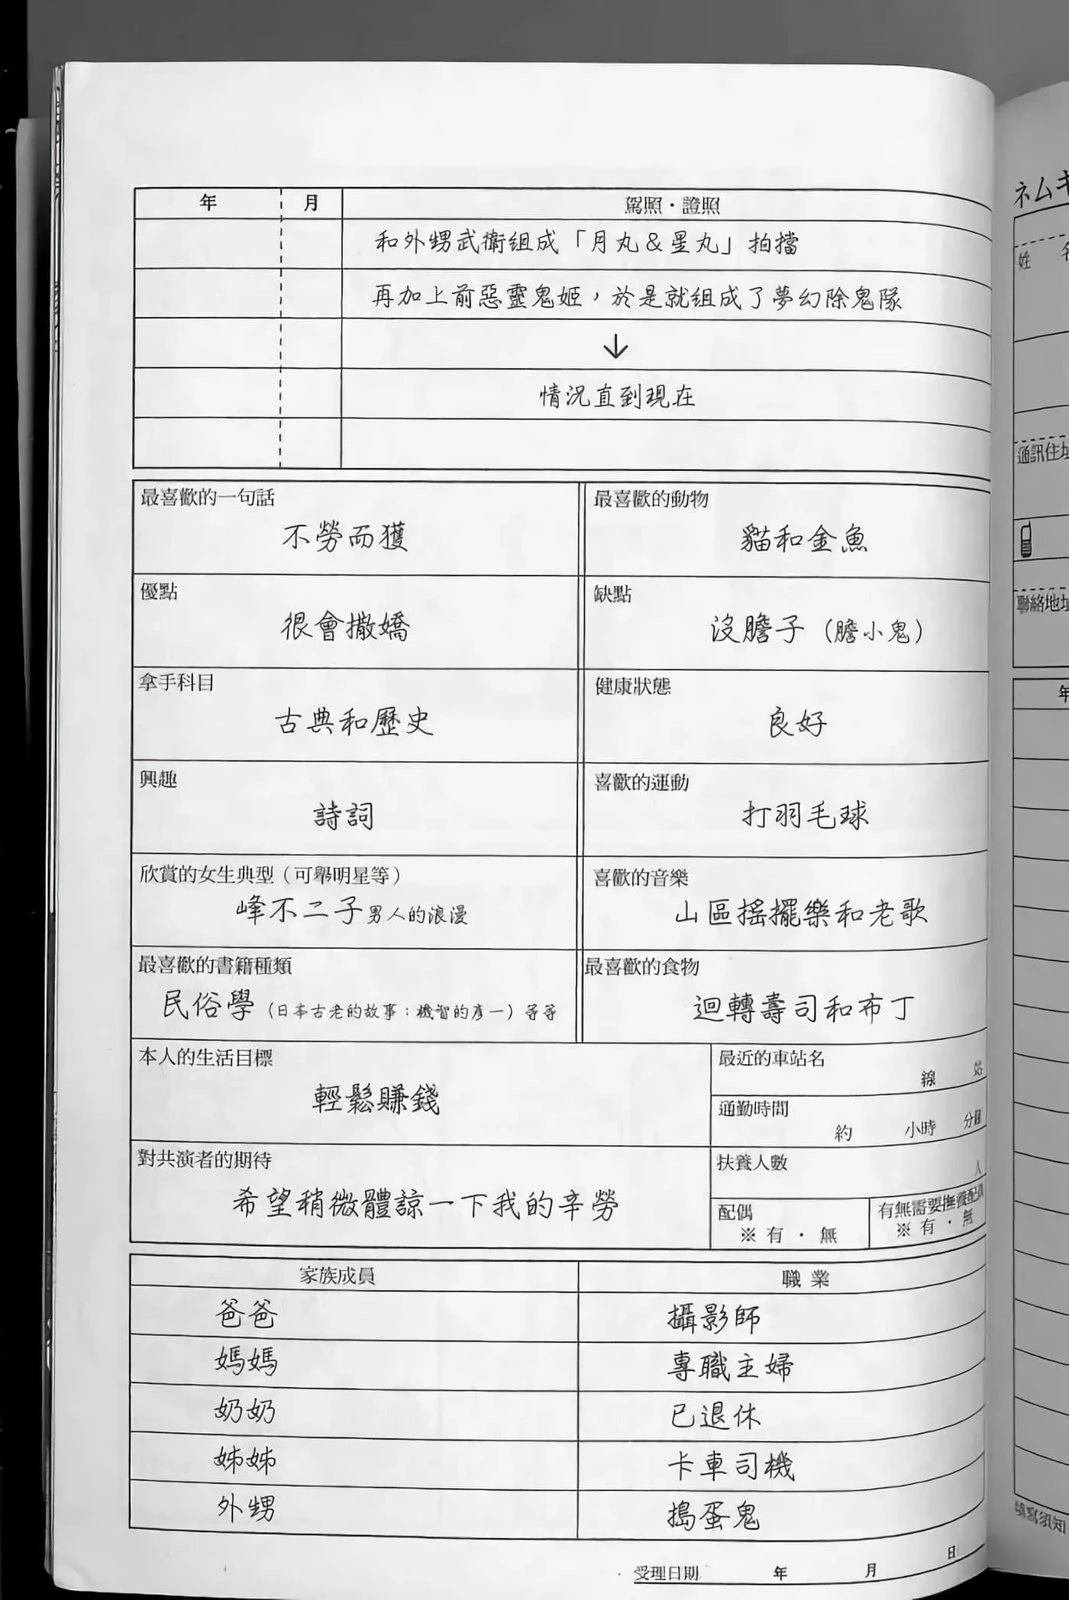 年 月 駕照・證照
和外甥武衛組成「月丸&星丸」拍擋
再加上前惡靈鬼姬，於是就組成了夢幻除鬼隊
↓
情況直到現在
最喜歡的一句話 最喜歡的動物
不勞而獲 貓和金魚
優點 缺點
很會撒嬌 沒膽子（膽小鬼）
拿手科目 健康狀態
古典和歷史 良好
興趣 喜歡的運動
詩詞 打羽毛球
欣賞的女生典型（可舉明星等） 喜歡的音樂
峰不二子男人的浪漫 山區搖擺樂和老歌
最喜歡的書籍種類 最喜歡的食物
民俗學（日本古老的故事：機智的彥一）等等 迴轉壽司和布丁
本人的生活目標 最近的車站名
輕鬆賺錢 線 站
通勤時間
約 小時 分鐘
對共演者的期待 扶養人數
人
希望稍微體諒一下我的辛勞
配偶 有無需要撫養配偶
※ 有 ・ 無 ※ 有 ・ 無
家族成員 職 業
爸爸 攝影師
媽媽 專職主婦
奶奶 已退休
姊姊 卡車司機
外甥 搗蛋鬼
受理日期 年 月 日
ネムキ
姓 名
通訊住址
聯絡地址
年